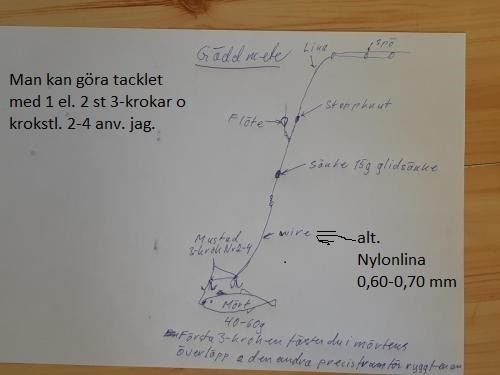 Gäddmete
Lina
Spö
Man kan göra tacklet
med 1 el. 2 st 3-krokar o
krokstl. 2-4 anv. jag.
Flöte
Stoppknut
Sänke 15g glidsänke
Mustad
3-krok Nr 2-4
wire
alt.
Nylonlina
0,60-0,70 mm
Mört
40-60g
Första 3-kroken fäster du i mörtens
överläpp o den andra precis framför